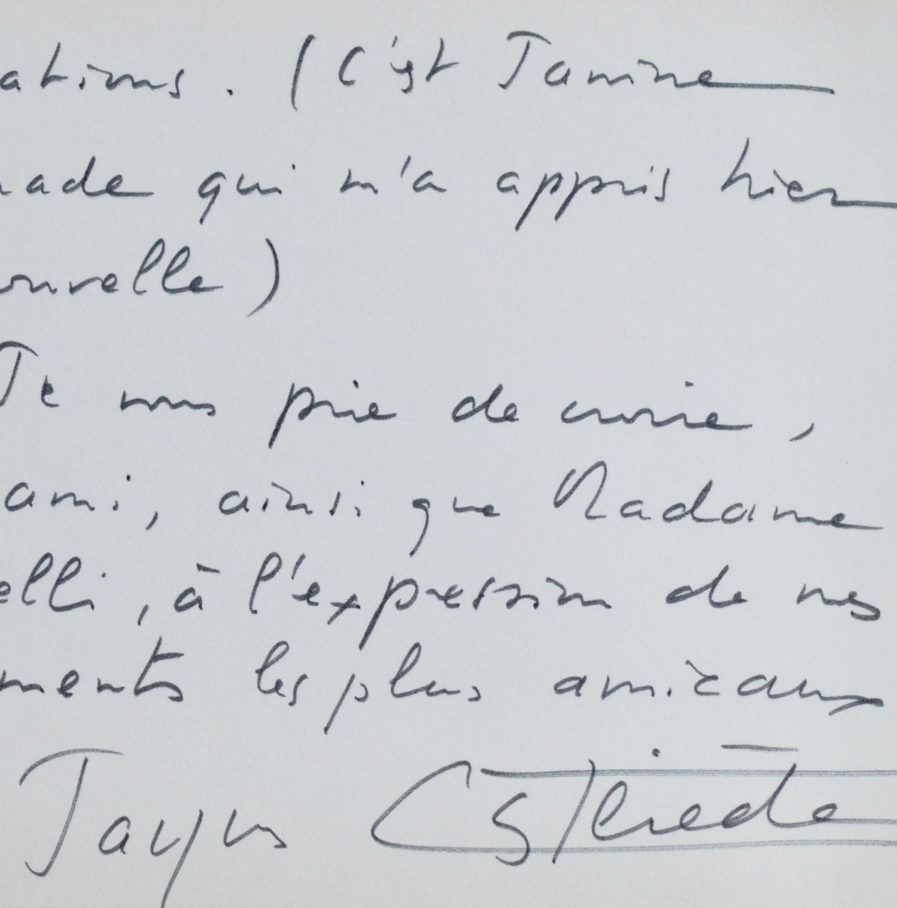 ations. (C'est Janine
nade qui m'a appris hier
ouvelle)
Je vous prie de croire,
ami, ainsi que Madame
elli, à l'expression de nos
ments les plus amicaux
Jacques Castérède